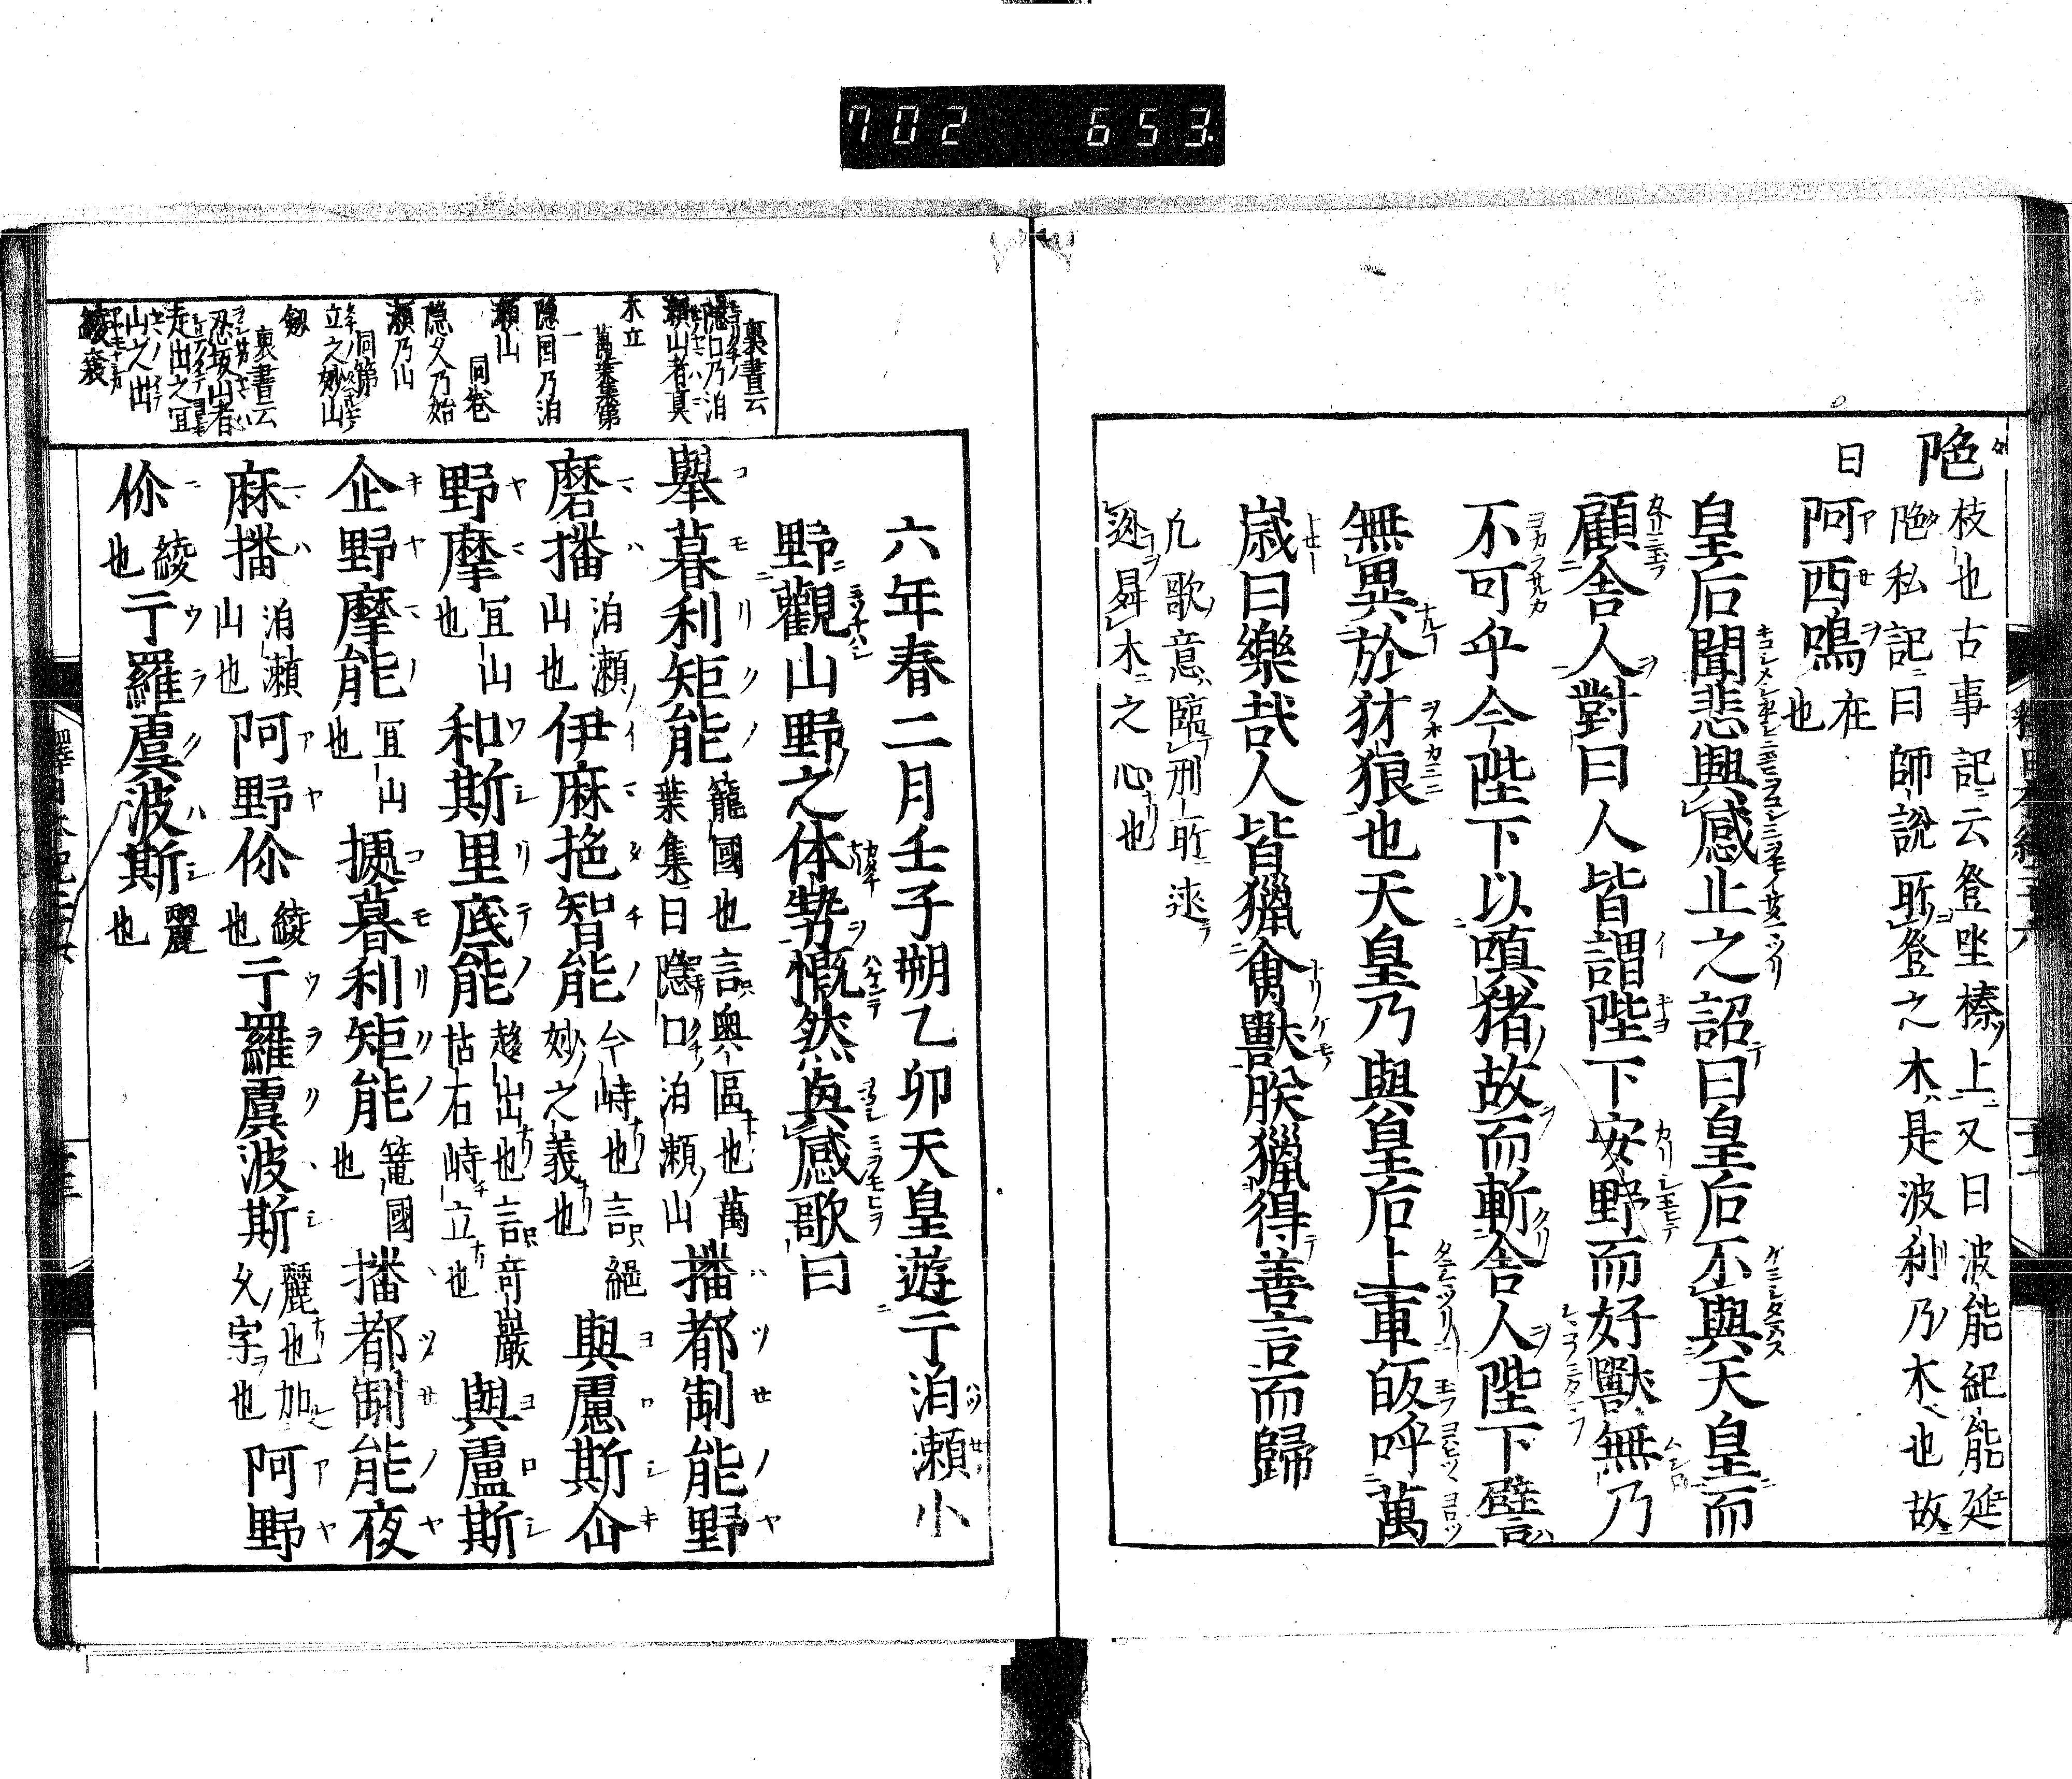 702 653
阤
枝也古事記云登坐榛上又曰波能紀能延
阤私記曰師說所登之木是波利乃木也故
曰
阿西鳴
在
也
皇后聞悲興感止之詔曰皇后不與天皇而
顧舍人對曰人皆謂陛下安野而好獸無乃
不可乎今陛下以嗔猪故而斬舍人陛下譬
無異於豺狼也天皇乃與皇后上車皈呼萬
歲曰樂哉人皆獵禽獸朕獵得善言而歸
凡歌意臨刑所迯
迯舜木之心也
六年春二月壬子朔乙卯天皇遊亍泊瀨小
野觀山野之体勢慨然興感歌曰
擧暮利矩能
籠國也言奧區也萬
葉集曰隱口泊瀨山
播都制能野
磨播
泊瀨
山也
伊麻拖智能
今峙也言絕
妙之義也
與慮斯企
野摩
冝山
也
和斯里底能
趍出也言奇巖
怙石峙立也
與盧斯
企野摩能
冝山
也
據暮利矩能
篭國
也
播都制能夜
麻播
泊瀨
山也
阿野你
綾
也
亍羅虞波斯
麗也加
文字也
阿野
你
綾
也
亍羅虞波斯
麗
也
裏書云
隱口乃泊
瀨山者真
木立
萬葉集第
一
隱国乃泊
瀨山
同巻
隱久乃始
瀨乃山
同第
立之妙山
裏書云
忍坂山者
走出之冝
山之出